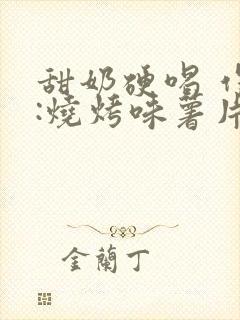 甜奶硬唱
:燒烤味薯片
金蘭丁